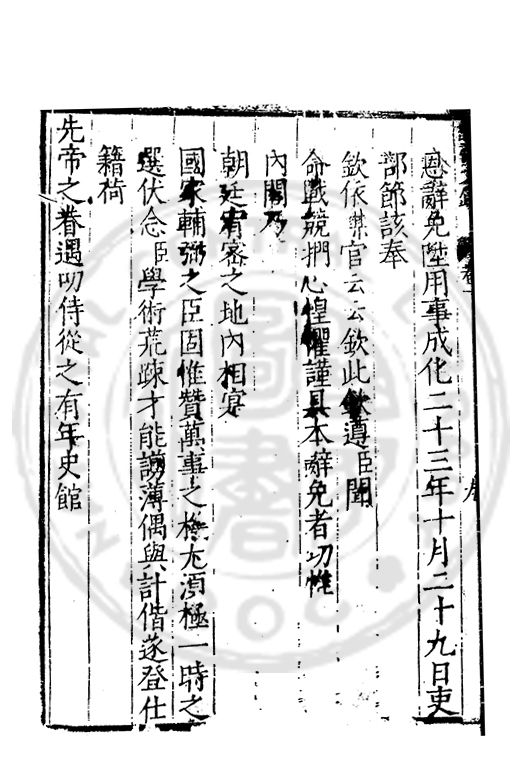 恩辭免陞用事成化二十三年十月二十九日吏
部節該奉
欽依某官云云欽此欽遵臣聞
命戰兢捫心惶懼謹具本辭免者切惟
內閣乃
朝廷宥密之地內相寔
國家輔弼之臣固惟贊萬事之樞尤須極一時之
選伏念臣學術荒疎才能謭薄偶與計偕遂登仕
籍荷
先帝之眷遇叨侍從之有年史館